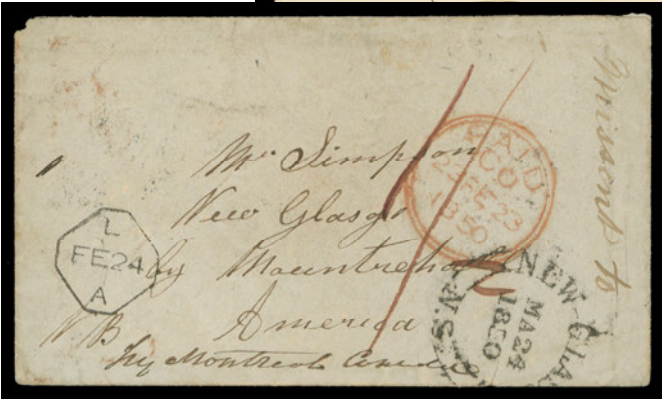 Mr Simpson
New Glasgo
by Mountreha
America
N.B
by Montreal Canada
L
FE24
A
PAID
CO
FE 23
1850
NEW-GLAS
N.S.
MA24
1850
to